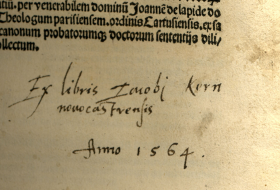 tiũ. per venerabilem dominũ Joannẽ de lapide do
Theologum parisiensem. ordinis Cartusiensis. ex sa
canonum probatorumq; doctorum sententijs dili
ollectum.
Ex libris Iacobj Kern
novocastrensis
Anno 1564.